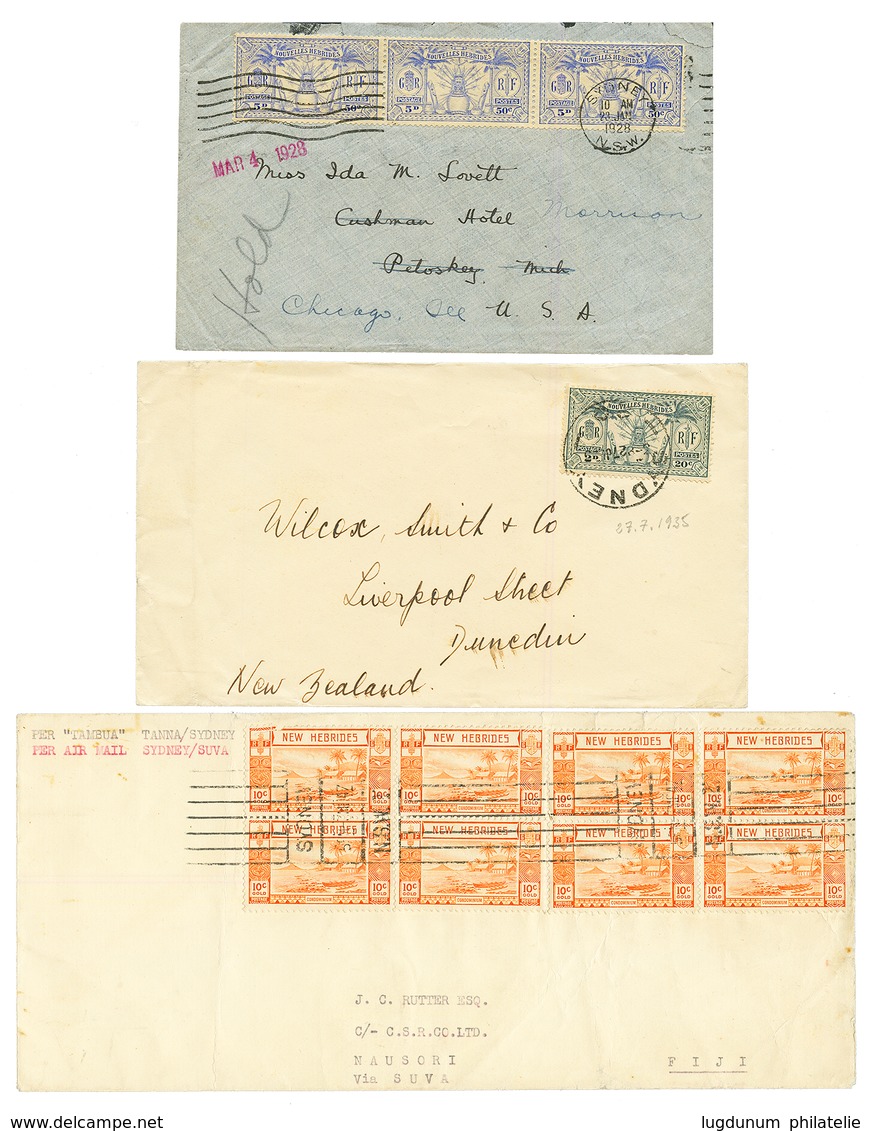 NOUVELLES HEBRIDES NOUVELLES HEBRIDES NOUVELLES HEBRIDES
G R R F G R R F G R R F
POSTAGE POSTES POSTAGE POSTES POSTAGE POSTES
5D 50c 5D 50c 5D 50c
SYDNEY
10 AM
23 JAN
1928
N.S.W.
MAR 4 1928
Miss Ida M. Lovett
Cushman Hotel Morrison
Petoskey, Mich
Hold
Chicago, Ill U. S. A.
NOUVELLES HEBRIDES
G R R F
POSTAGE POSTES
2D 20c
SYDNEY
27.7.1935
Wilcox, Smith & Co
Liverpool Street
Dunedin
New Zealand.
PER "TAMBUA" TANNA/SYDNEY
PER AIR MAIL SYDNEY/SUVA
NEW HEBRIDES NEW HEBRIDES NEW HEBRIDES NEW HEBRIDES
10c GOLD 10c GOLD 10c GOLD 10c GOLD
SYDNEY
NEW HEBRIDES NEW HEBRIDES NEW HEBRIDES NEW HEBRIDES
10c 10c GOLD 10c 10c GOLD 10c 10c GOLD 10c 10c GOLD
CONDOMINIUM CONDOMINIUM CONDOMINIUM CONDOMINIUM
J. C. RUTTER ESQ.
C/- C.S.R.CO.LTD.
NAUSORI FIJI
Via SUVA
delcampe.net lugdunum philatelie